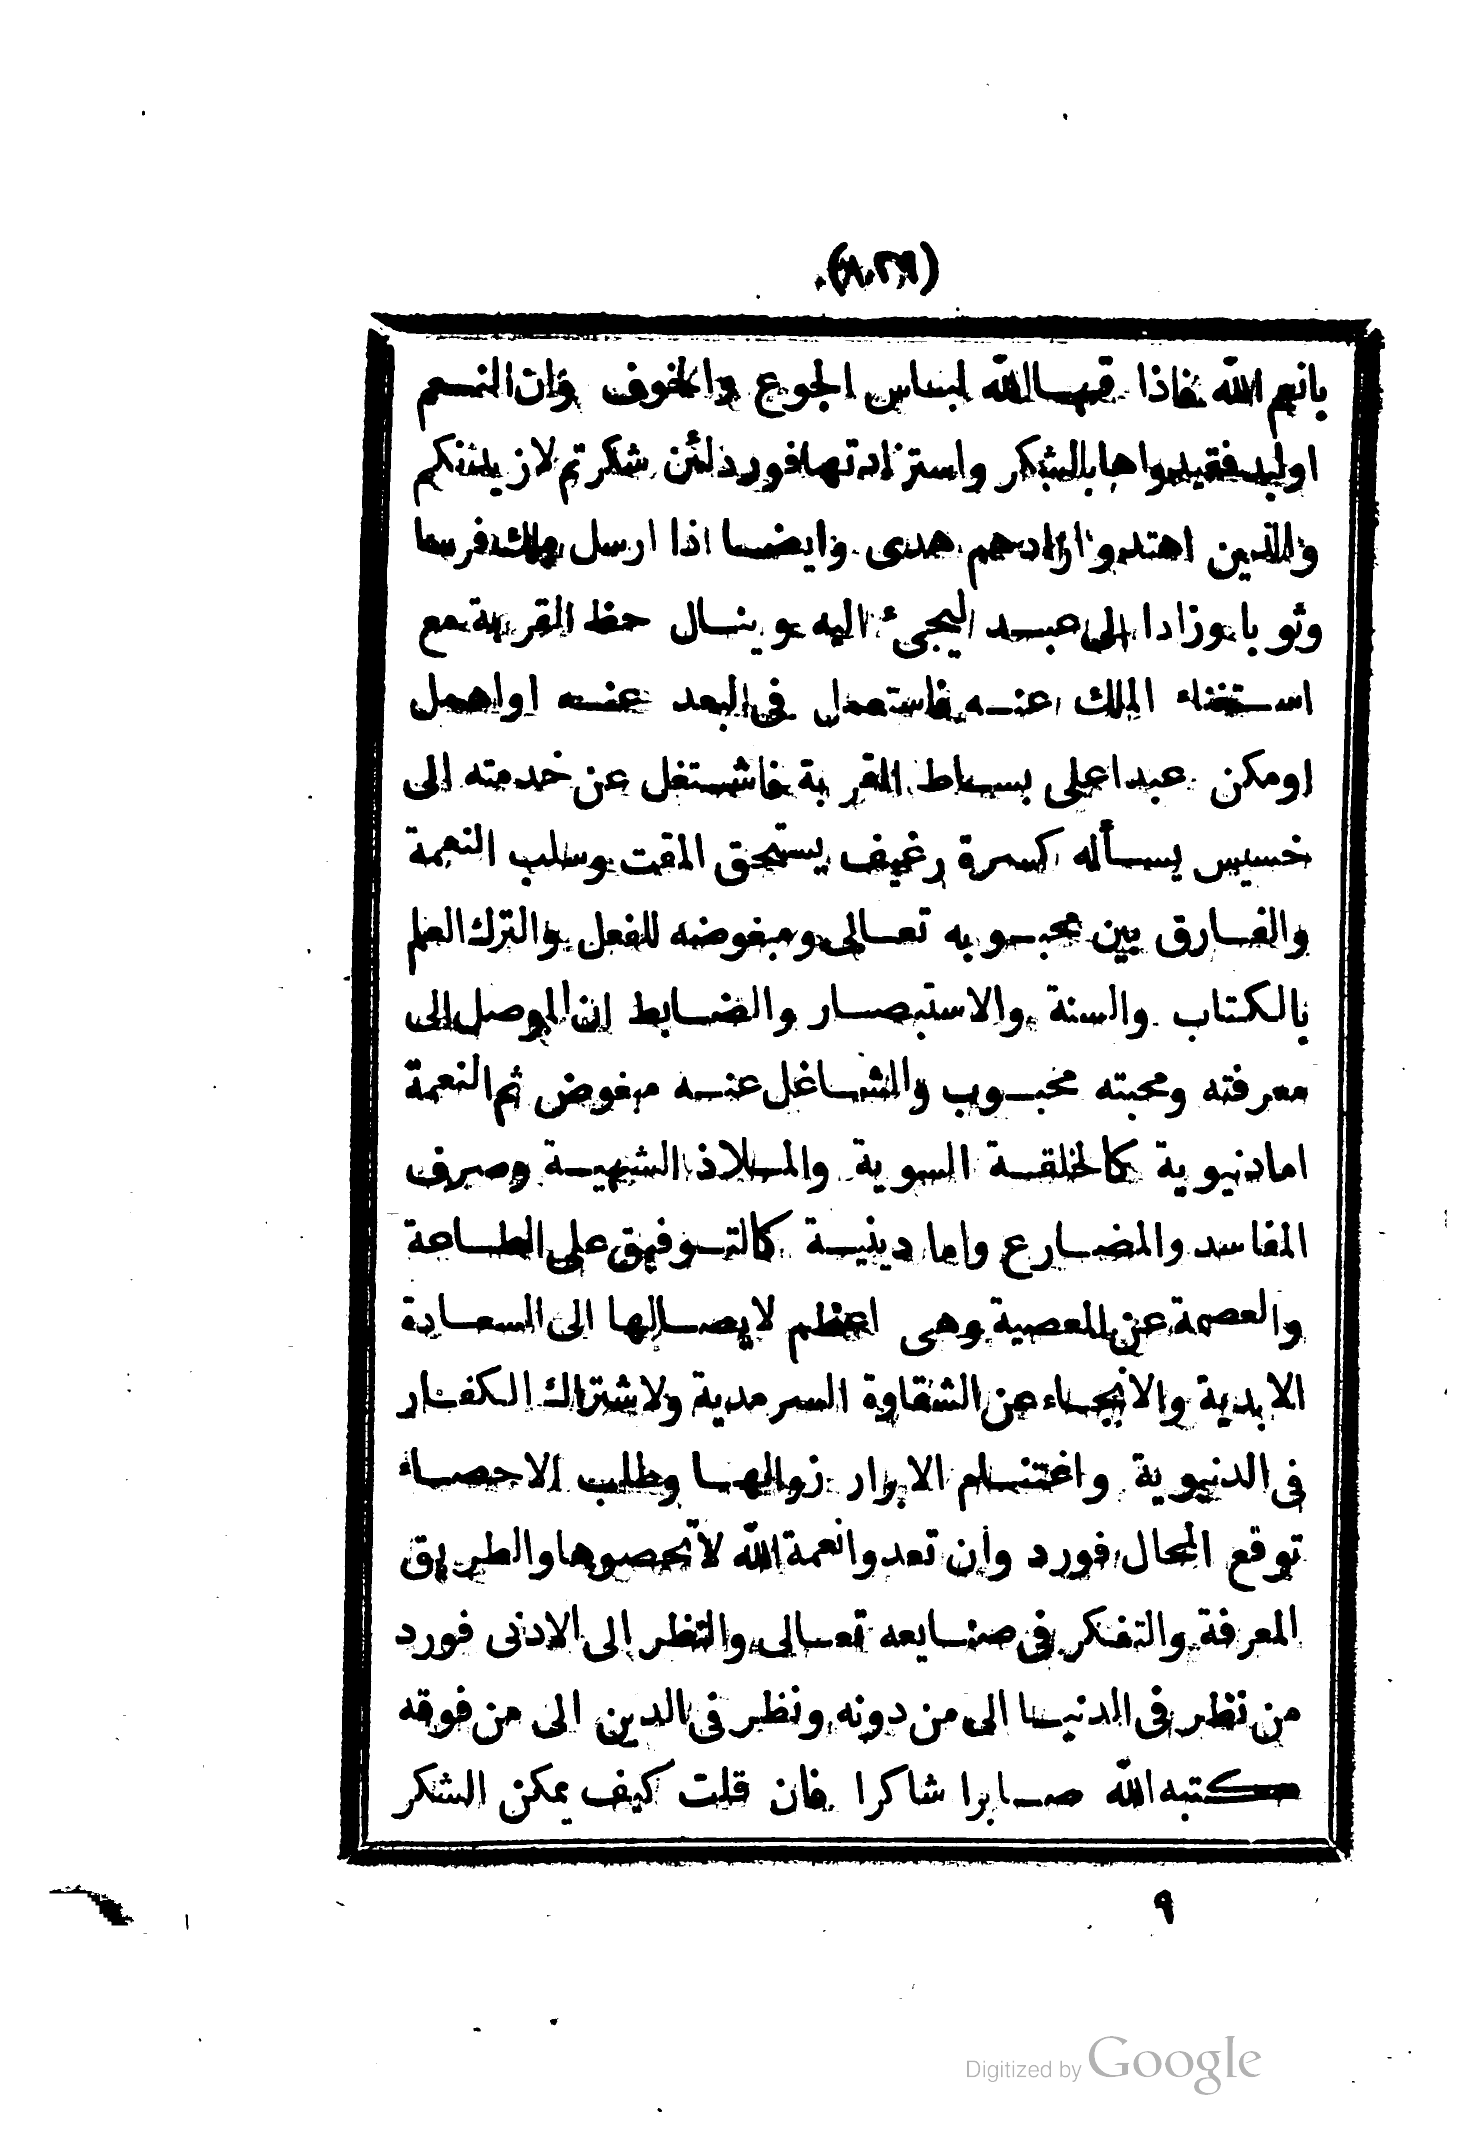 بانعم الله فاذا قها الله لباس الجوع والخوف وان النعم
اوابد فقيدواها بالشكر واستزادتها فورد لئن شكرتم لازيدنكم
والذين اهتدوا زادهم هدى وايضا اذا ارسل ملك فرسا
وثوبا وزادا الى عبد ليجىء اليه وينال حظ القربة مع
استغناء الملك عنه فاستعمل فى البعد عنه او اهمل
اومكن عبدا على بساط القربة فاشتغل عن خدمته الى
خسيس يسأله كسرة رغيف يستحق المقت وسلب النعمة
والفارق بين محبوبه تعالى ومبغوضه للفعل والترك العلم
بالكتاب والسنة والاستبصار والضابط ان الموصل الى
معرفته ومحبته محبوب والشاغل عنه مبغوض ثم النعمة
امادنيوية كالخلقة السوية والملاذ الشهية وصرف
المفاسد والمضارع واما دينية كالتوفيق على الطاعة
والعصمة عن المعصية وهى اعظم لايصالها الى السعادة
الابدية والانجاء عن الشقاوة السرمدية ولاشتراك الكفار
فى الدنيوية واغتنام الابرار زوالها وطلب الاحصاء
توقع المحال فورد وان تعدوا نعمة الله لاتحصوها والطريق
المعرفة والتفكر فى صنايعه تعالى والنظر الى الادنى فورد
من نظر فى الدنيا الى من دونه ونظر فى الدين الى من فوقه
كتبه الله صابرا شاكرا فان قلت كيف يمكن الشكر
٩
Digitized by Google